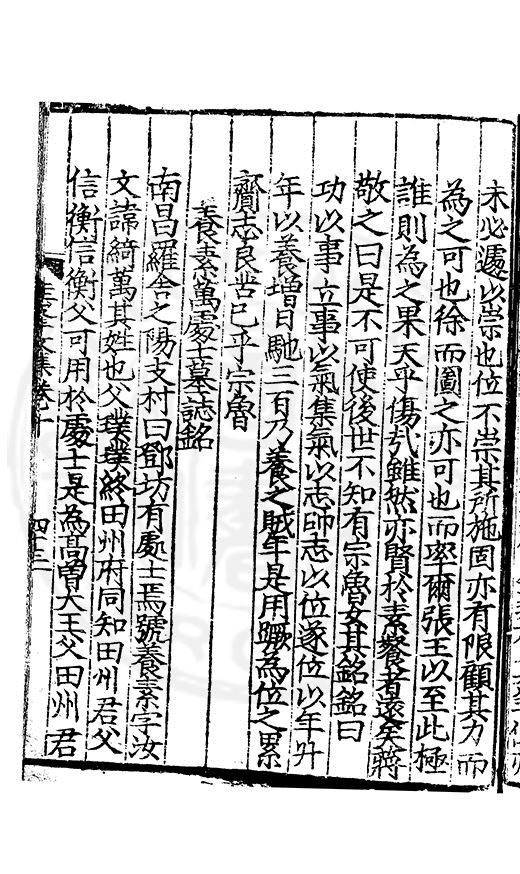 未必遽以崇也位不崇其所施固亦有限顧其力而
為之可也徐而圖之亦可也而率爾張王以至此極
誰則為之果天乎傷㢤雖然亦賢於素餐者遠矣蔣
敬之曰是不可使後世不知有宗魯文其銘銘曰
功以事立事以氣集氣以志帥志以位遂位以年升
年以養增日馳三百乃養之賊年是用蹶為位之累
齎志良苦已乎宗魯
養素萬處士墓誌銘
南昌羅舍之陽支村曰鄧坊有處士焉號養素字汝
文諱綺萬其姓也父璞璞終田州府同知田州君父
信衡信衡父可用於處士是為高曾大王父田州君
文集卷十
四十三